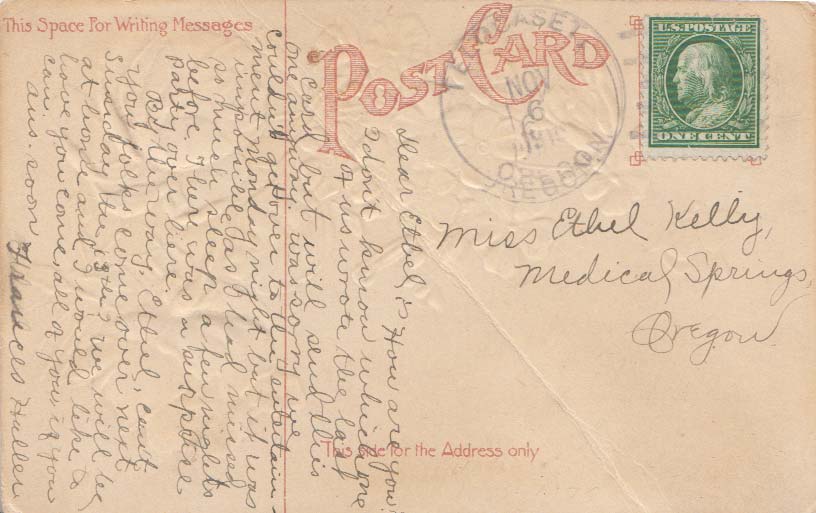 This Space For Writing Messages
POST CARD
NOV
6
OREGON
U.S. POSTAGE
ONE CENT
Miss Ethel Kelly,
Medical Springs,
Oregon.
This side for the Address only
Dear Ethel; How are you?
I don't know which one
of us wrote the last
card but will send this
one any way. Was sorry we
couldn't get over to the entertain-
ment Monday night but it was
impossible as I had missed
so much sleep a few nights
before. There was a surprise
party over here.
By the way Ethel, can't
you folks come over next
Sunday the 13th; we will be
at home and I would like to
have you come, all of you if you
can.
ans. soon
Frances Haller